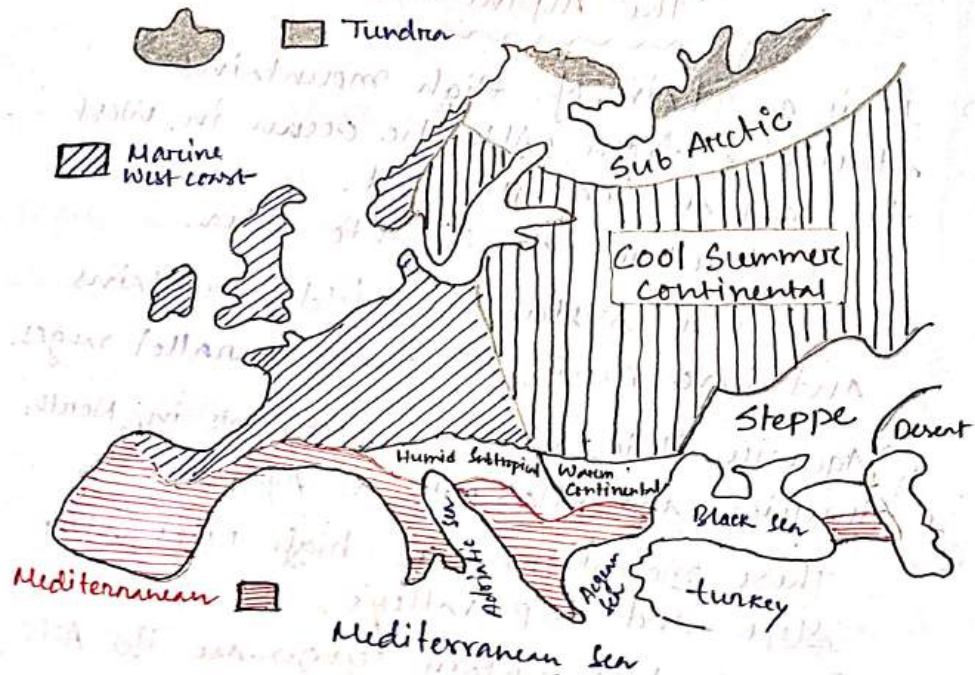 Tundra
Marine
West coast
Sub Arctic
Cool Summer
Continental
Steppe
Desert
Humid Subtropical
Warm
Continental
Black Sea
Adriatic Sea
Aegean
Sea
turkey
Mediterranean
Mediterranean Sea